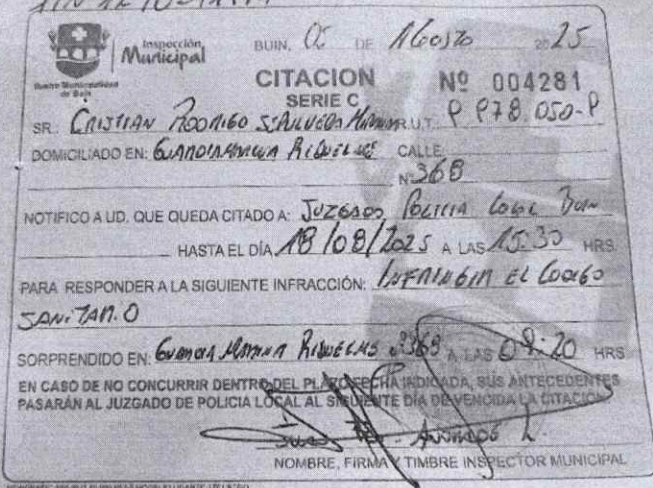 Inspección
Municipal
Ilustre Municipalidad
de Buin
BUIN, 05 DE Agosto 2025
CITACION Nº 004281
SERIE C
SR. CRISTIAN RODRIGO SEPULVEDA R.U.T.
DOMICILIADO EN: GUARDIAMARINA RIQUELME CALLE
Nº 368
NOTIFICO A UD. QUE QUEDA CITADO A: JUZGADO POLICIA LOCAL BUIN
HASTA EL DÍA 18/08/2025 A LAS 15:30 HRS.
PARA RESPONDER A LA SIGUIENTE INFRACCIÓN: INFRINGIR EL CODIGO
SANITARIO
SORPRENDIDO EN: GUARDIA MARINA RIQUELME A LAS 09:20 HRS
EN CASO DE NO CONCURRIR DENTRO DEL PLAZO FECHA INDICADA, SUS ANTECEDENTES
PASARÁN AL JUZGADO DE POLICIA LOCAL AL SIGUIENTE DÍA DE VENCIDA LA CITACIÓN
NOMBRE, FIRMA Y TIMBRE INSPECTOR MUNICIPAL